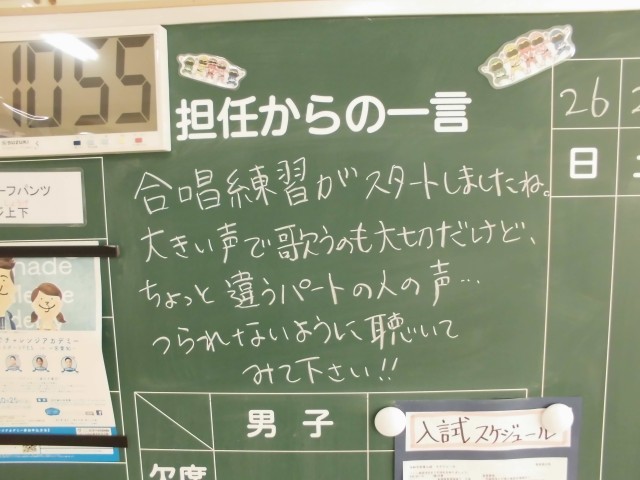 10:55
担任からの一言
合唱練習がスタートしましたね。
大きい声で歌うのも大切だけど、
ちょっと違うパートの人の声…
つられないように聴いて
みて下さい!!
26
日
ーフパンツ
上下
男子
欠席
入試スケジュール